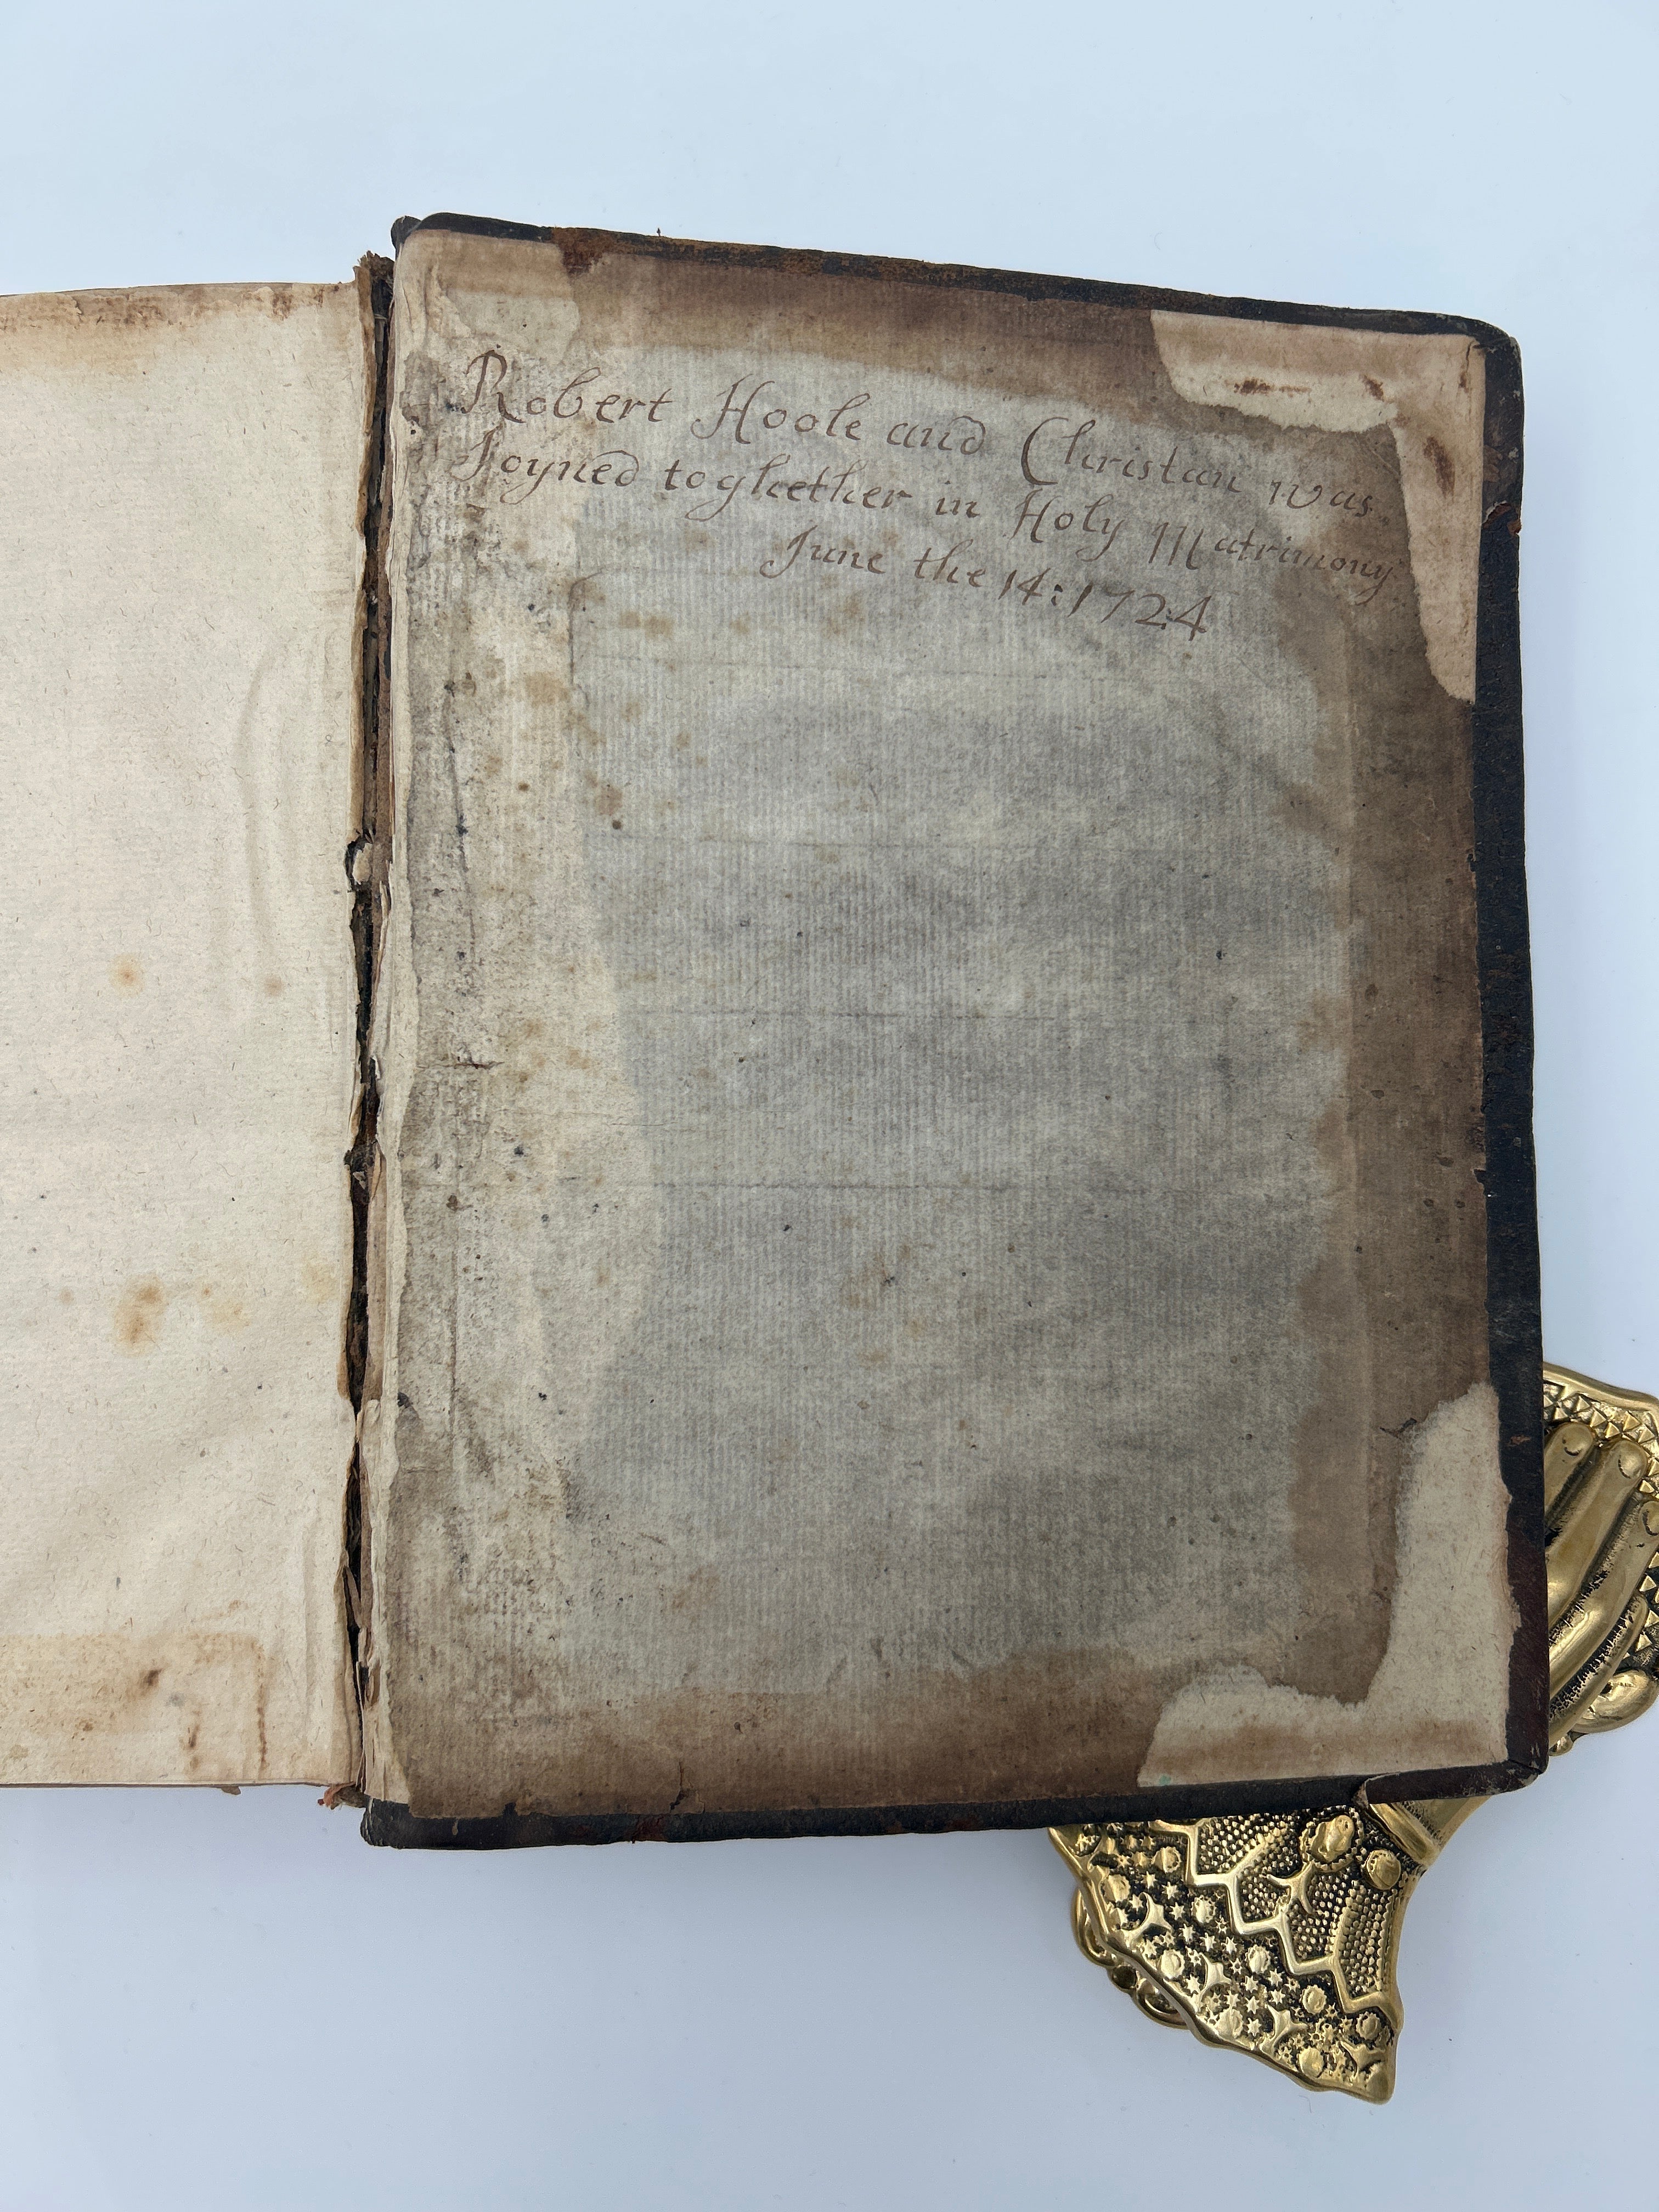 Robert Hoole and Christian was
Joyned toglhether in Holy Matrimony
June the 14: 1724